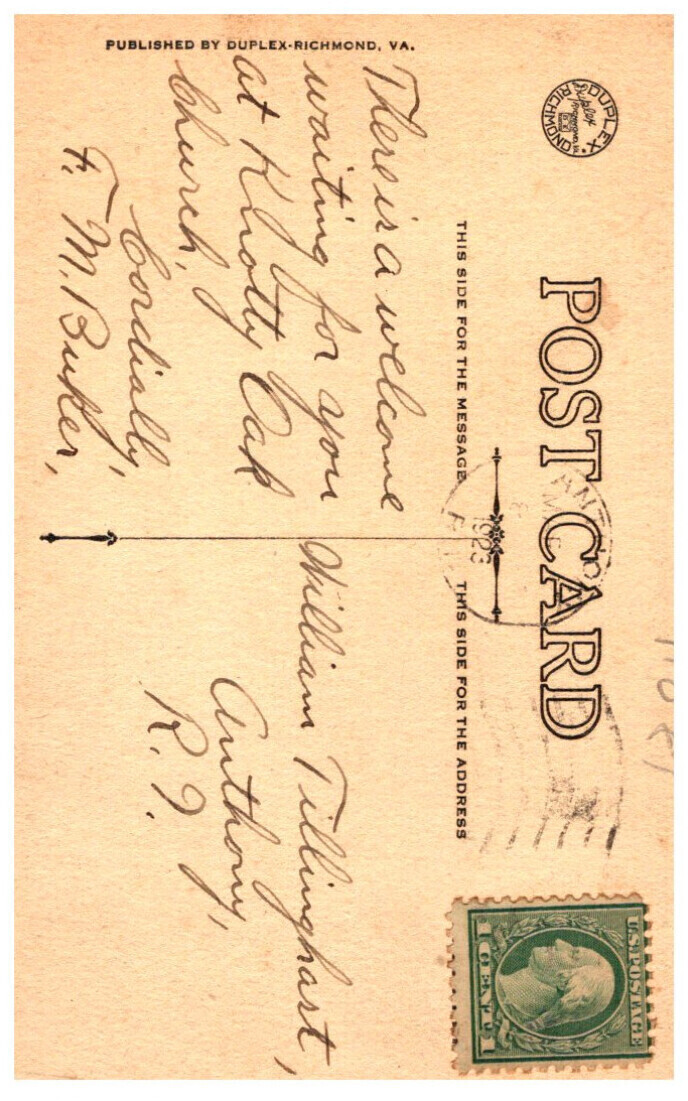 PUBLISHED BY DUPLEX-RICHMOND, VA.
DUPLEX
RICHMOND
POST CARD
THIS SIDE FOR THE MESSAGE
THIS SIDE FOR THE ADDRESS
There is a welcome
waiting for you
at Knotty Oak
Church,
Cordially,
F. M. Buker,
William Tillinghast,
Anthony,
R. I.
1923
U.S. POSTAGE
1 CENT 1